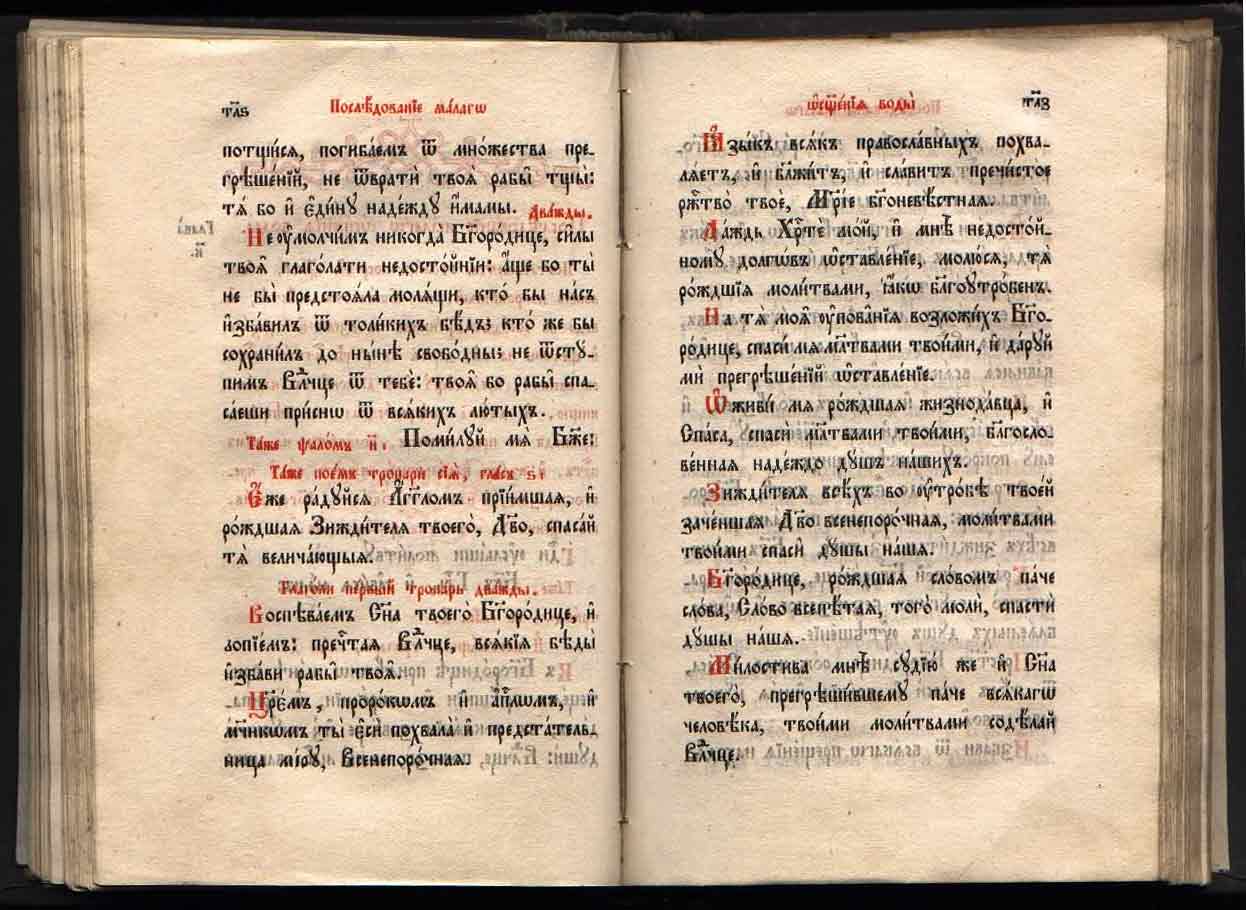 тл҃ѕ
Послѣ́дованїе ма́лагѡ
потщи́сѧ, погиба́емъ ѿ мно́жества пре-
грѣше́нїй, не ѿвратѝ твоѧ̀ рабы̀ тщы̀:
тѧ́ бо и҆ є҆ди́ну наде́жду и҆́мамы. Два́жды.
Не ᲂу҆молчи́мъ никогда̀ Бг҃оро́дице, си́лы
твоѧ̑ глаго́лати недосто́йнїи: а҆́ще бо ты̀
не бы̀ предстоѧ́ла молѧ́щи, кто́ бы на́съ
и҆зба́вилъ ѿ толи́кихъ бѣ́дъ; кто́ же бы
сохрани́лъ до ны́нѣ свобо́дны; не ѿсту́-
пимъ Влⷣчце ѿ тебє̀: твоѧ̑ бо рабы̑ спа-
са́еши при́снѡ ѿ всѧ́кихъ лю́тыхъ.
Та́же ѱало́мъ н҃. Поми́луй мѧ̀ Бж҃е:
Та́же пое́мъ тропарѝ сїѧ̑, гла́съ ѕ҃:
Є҆́же ра́дуйсѧ А҆́гг҃ломъ прїи́мшаѧ, и҆
ро́ждшаѧ Зижди́телѧ твоего̀, Дв҃о, спаса́й
тѧ̀ велича́ющыѧ.
Глаго́ли пе́рвый тропа́рь два́жды.
Воспѣва́емъ Сн҃а твоего̀ Бг҃оро́дице, и҆
вопїе́мъ: пречⷭ҇таѧ Влⷣчце, всѧ́кїѧ бѣды̀
и҆зба́ви рабы̑ твоѧ̑.
Цр҃е́мъ, проро́кѡмъ и҆ а҆пⷭ҇лѡмъ, и҆
мч҃нкѡмъ ты̀ є҆сѝ похвала̀ и҆ предста́тель-
ница мі́ру, Всенепоро́чнаѧ.
ѡ҆сщ҃е́нїѧ воды̀
тл҃з
Ꙗ҆зы́къ всѧ́къ правосла́вныхъ похва-
лѧ́етъ, и҆ бл҃жи́тъ, и҆ сла́витъ пречи́стое
ржⷭ҇тво̀ твоѐ, Мр҃і́е бг҃оневѣ́стнаѧ.
Да́ждь Хрⷭ҇тѐ мо́й, и҆ мнѣ̀ недосто́й-
ному долгѡ́въ ѡ҆ставле́нїе, молю́сѧ, тѧ̀
ро́ждшїѧ моли́твами, ꙗ҆́кѡ бл҃гоутро́бенъ.
На тѧ̀ моѧ̑ ᲂу҆пова̑нїѧ возложи́хъ Бг҃о-
ро́дице, спаси́ мѧ мл҃твами твои́ми, и҆ да́руй
мѝ прегрѣше́нїй ѡ҆ставле́нїе.
Ѡ҆живи́ мѧ ро́ждшаѧ жизнода́вца, и҆
Спа́са, спасѝ мл҃твами твои́ми, бл҃госло-
ве́ннаѧ наде́ждо ду́шъ на́шихъ.
Зижди́телѧ всѣ́хъ во ᲂу҆тро́бѣ твое́й
заче́ншаѧ Дв҃о всенепоро́чнаѧ, моли́твами
твои́ми спасѝ ду́шы на́шѧ.
Бг҃оро́дице, ро́ждшаѧ сло́вомъ па́че
сло́ва, Сло́во всепѣ́таѧ, того̀ молѝ, спастѝ
ду́шы на́шѧ.
Ми́лостива мнѣ̀ судїю́ же и҆ Сн҃а
твоего̀, прегрѣши́вшему па́че всѧ́кагѡ
человѣ́ка, твои́ми моли́твами содѣ́лай
Влⷣчце.